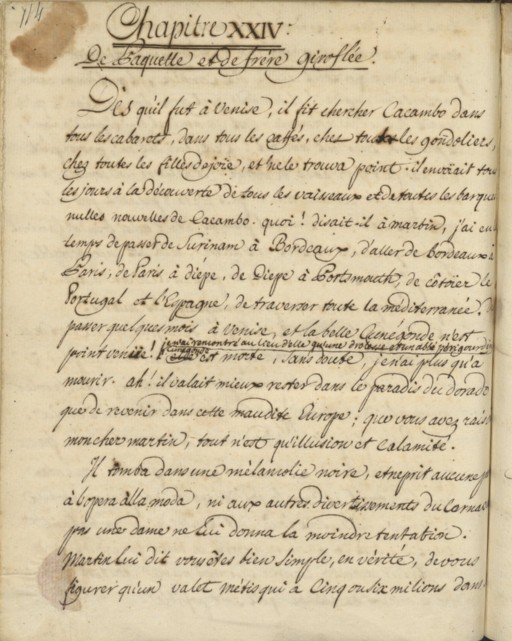 114
Chapitre XXIV:
De Paquette et de frére Giroflée.
Dès qu'il fut à Venise, il fit chercher Cacambo dans
tous les cabarets, dans tous les caffés, chez toutes les gondoliers,
chez toutes les filles de joie, et ne le trouva point. il envoiait tous
les jours à la découverte de tous les vaisseaux et de toutes les barques
nulles nouvelles de Cacambo. quoi! disait-il à martin, j'ai eu
temps de passer de Surinam à Bordeaux, d'aller de bordeaux à
Paris, de Paris à diépe, de Diepe à Portsmouth, de côtoier le
Portugal et l'Espagne, de traverser toute la méditerranée,
passer quelques mois à Venise, et la belle Cunégonde n'est
je n'ai rencontré au lieu d'elle qu'une drolesse et un abbé périgourdin
point venüe! est morte, sans doute, je n'ai plus qu'a
mourir. ah! il valait mieux rester dans le paradis du dorado
que de revenir dans cette maudite Europe; que vous avez raison
mon cher martin, tout n'est qu'illusion et calamité.
Il tomba dans une mélancolie noire, et ne prit aucune
à l'opera alla moda, ni aux autres divertissements du Carna
pas une dame ne lui donna la moindre tentation.
Martin lui dit vous êtes bien simple, en vérité, de vous
figurer qu'un valet métis qui à cinq ou six milions dans